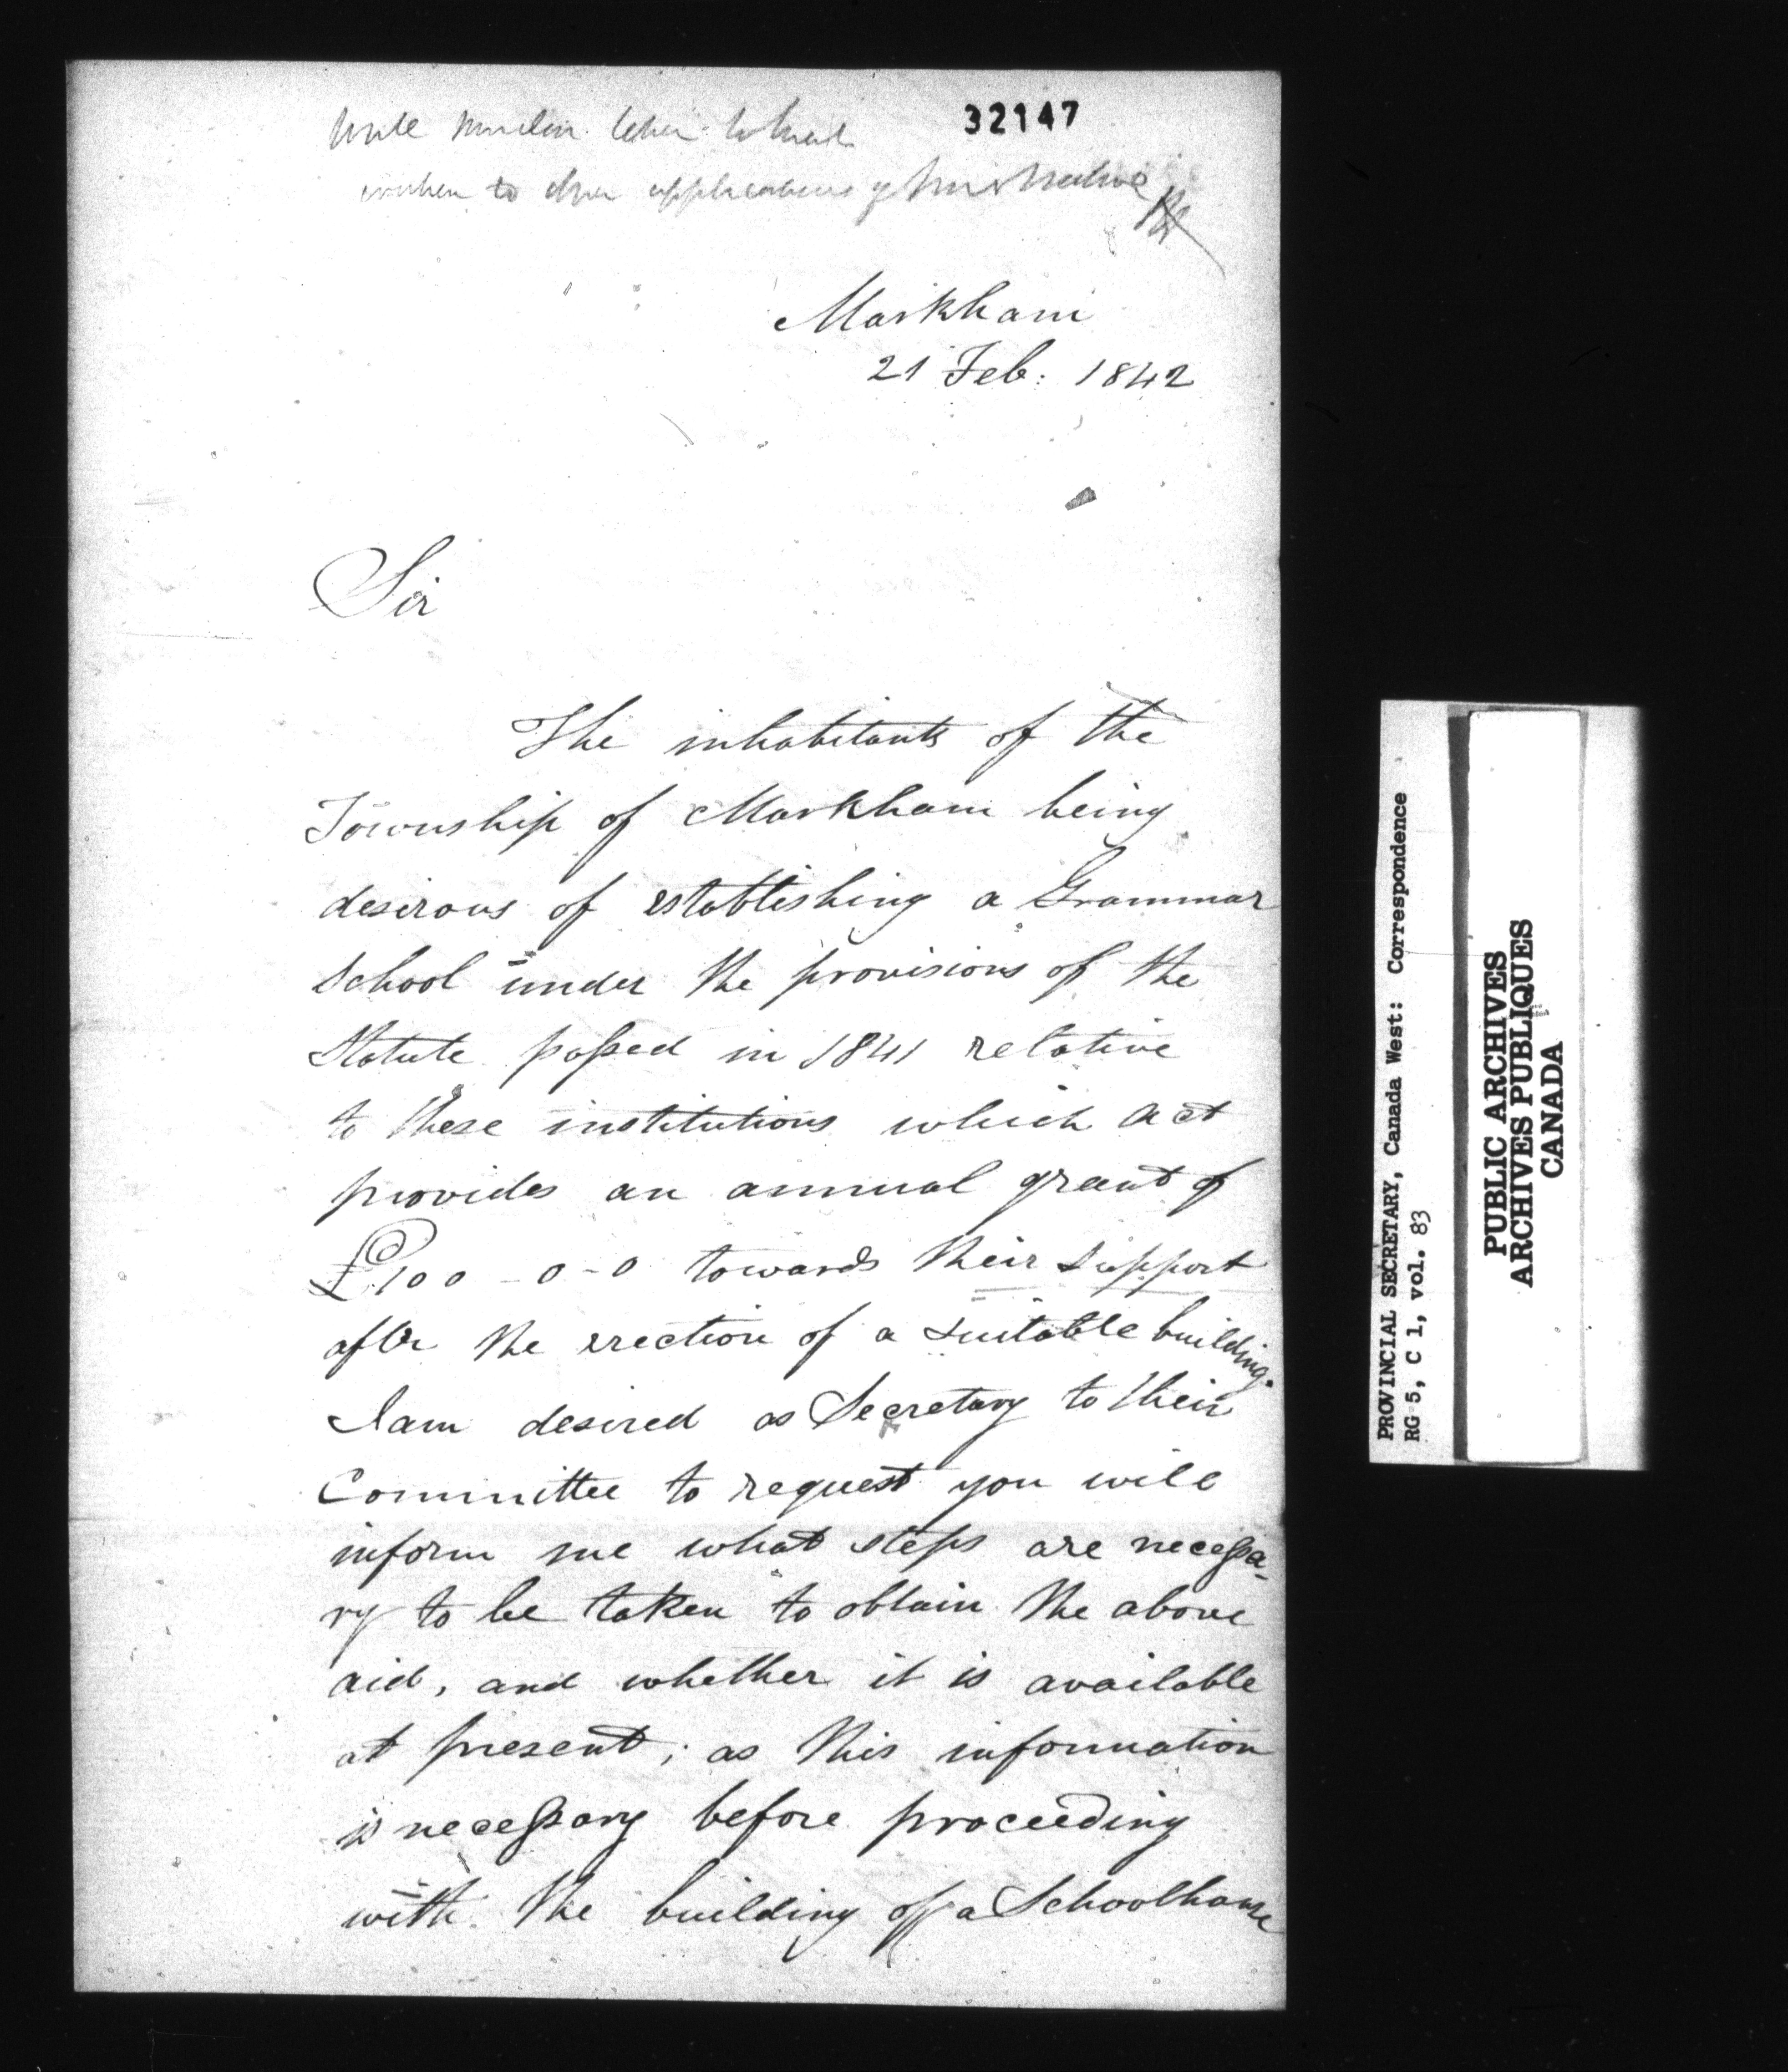 32147
Write similar letter to that
written to other applications of this nature
Markham
21 Feb: 1842
Sir
The inhabitants of the
Township of Markham being
desirous of establishing a Grammar
School under the provisions of the
Statute passed in 1841 relative
to these institutions which act
provides an annual grant of
£100-0-0 towards their support
after the erection of a suitable building.
I am desired as Secretary to their
Committee to request you will
inform me what steps are necessa-
ry to be taken to obtain the above
aid, and whether it is available
at present; as this information
is necessary before proceeding
with the building of a Schoolhouse
PROVINCIAL SECRETARY, Canada West: Correspondence
RG 5, C 1, vol. 83
PUBLIC ARCHIVES
ARCHIVES PUBLIQUES
CANADA